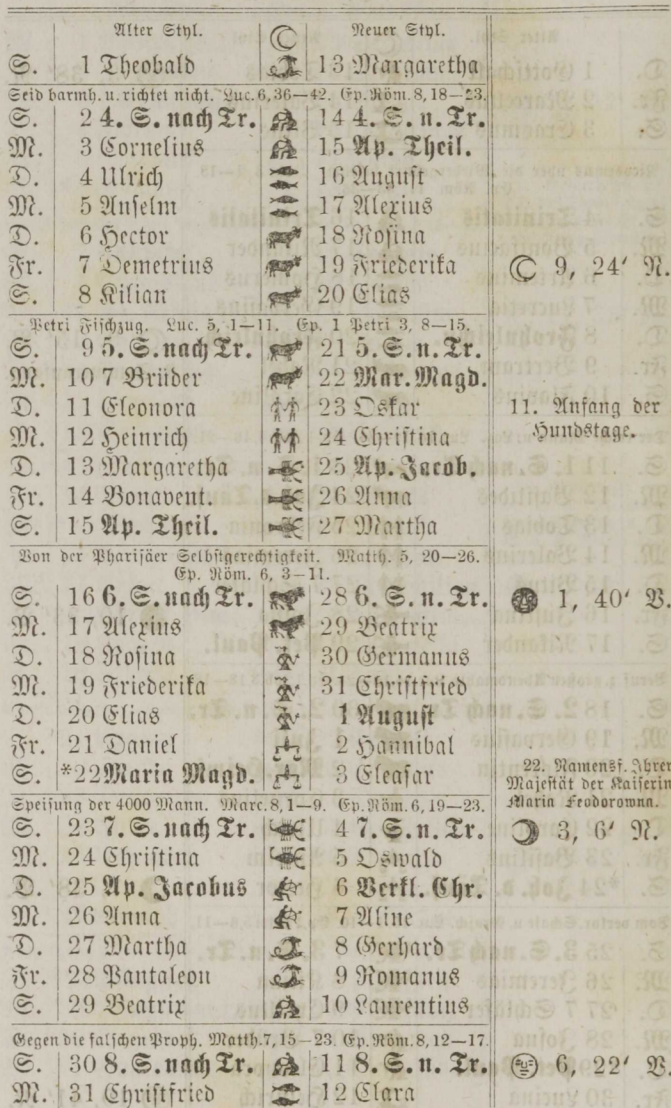 Alter Styl. Neuer Styl.
S. 1 Theobald 13 Margaretha
Seid barmh. u. richtet nicht. Luc. 6, 36—42. Ep. Röm. 8, 18—23.
S. 2 4. S. nach Tr. 14 4. S. n. Tr.
M. 3 Cornelius 15 Ap. Theil.
D. 4 Ulrich 16 August
M. 5 Anselm 17 Alexius
D. 6 Hector 18 Rosina
Fr. 7 Demetrius 19 Friederika ☾ 9, 24′ N.
S. 8 Kilian 20 Elias
Petri Fischzug. Luc. 5, 1—11. Ep. 1 Petri 3, 8—15.
S. 9 5. S. nach Tr. 21 5. S. n. Tr.
M. 10 7 Brüder 22 Mar. Magd.
D. 11 Eleonora 23 Oskar 11. Anfang der
M. 12 Heinrich 24 Christina Hundstage.
D. 13 Margaretha 25 Ap. Jacob.
Fr. 14 Bonavent. 26 Anna
S. 15 Ap. Theil. 27 Martha
Von der Pharisäer Selbstgerechtigkeit. Matth. 5, 20—26.
Ep. Röm. 6, 3—11.
S. 16 6. S. nach Tr. 28 6. S. n. Tr. 1, 40′ V.
M. 17 Alexius 29 Beatrix
D. 18 Rosina 30 Germanus
M. 19 Friederika 31 Christfried
D. 20 Elias 1 August
Fr. 21 Daniel 2 Hannibal
S. *22 Maria Magd. 3 Eleasar
22. Namensf. Ihrer
Majestät der Kaiserin
Maria Feodorowna.
Speisung der 4000 Mann. Marc. 8, 1—9. Ep. Röm. 6, 19—23.
S. 23 7. S. nach Tr. 4 7. S. n. Tr. ☽ 3, 6′ N.
M. 24 Christina 5 Oswald
D. 25 Ap. Jacobus 6 Verkl. Chr.
M. 26 Anna 7 Aline
D. 27 Martha 8 Gerhard
Fr. 28 Pantaleon 9 Romanus
S. 29 Beatrix 10 Laurentius
Gegen die falschen Proph. Matth. 7, 15—23. Ep. Röm. 8, 12—17.
S. 30 8. S. nach Tr. 11 8. S. n. Tr. 6, 22′ V.
M. 31 Christfried 12 Clara